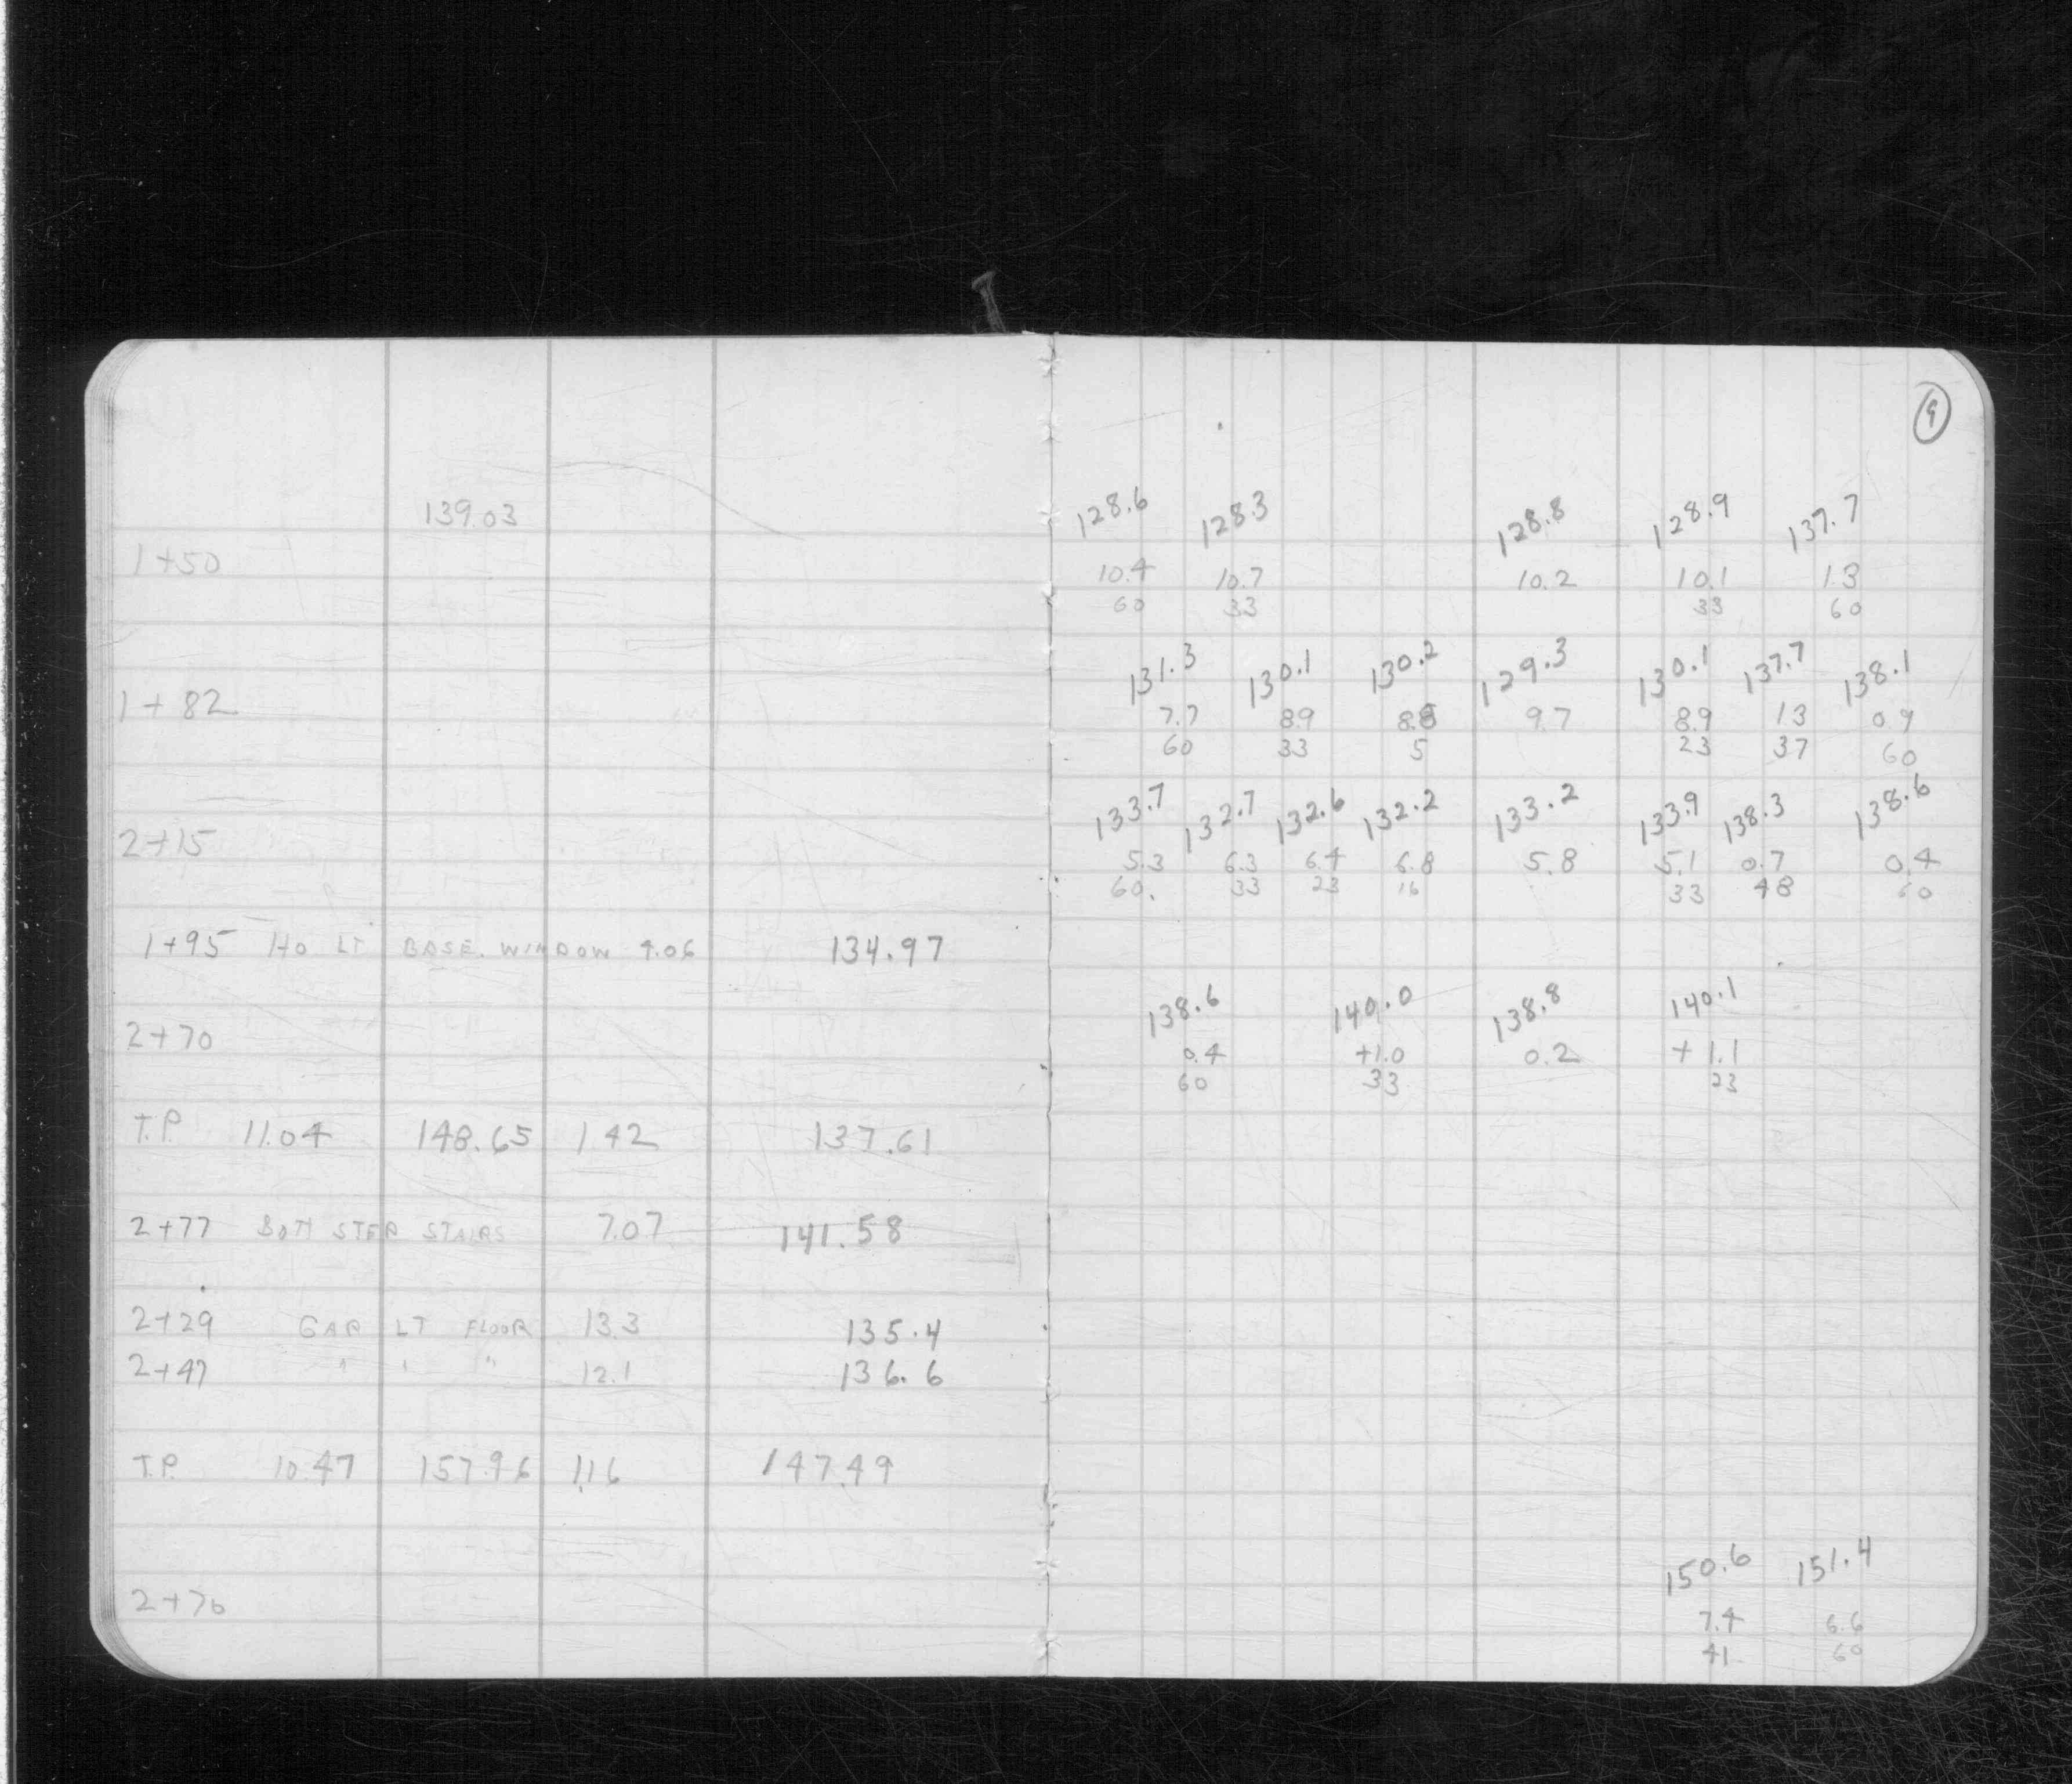 9
139.03
128.6 128.3 128.8 128.9 137.7
1+50 10.4 10.7 10.2 10.1 1.3
60 33 33 60
131.3 130.1 130.2 129.3 130.1 137.7 138.1
1+82 7.7 8.9 8.8 9.7 8.9 1.3 0.9
60 33 5 23 37 60
133.7 132.7 132.6 132.2 133.2 133.9 138.3 138.6
2+15 5.3 6.3 6.4 6.8 5.8 5.1 0.7 0.4
60. 33 23 16 33 48 60
1+95 HO LT BASE. WINDOW 4.06 134.97
138.6 140.0 138.8 140.1
2+70 0.4 +1.0 0.2 +1.1
60 33 23
T.P. 11.04 148.65 1.42 137.61
2+77 BOTT STEP STAIRS 7.07 141.58
2+29 GAR LT FLOOR 13.3 135.4
2+47 " " " 12.1 136.6
T.P. 10.47 157.96 1.16 147.49
150.6 151.4
2+70 7.4 6.6
41 60